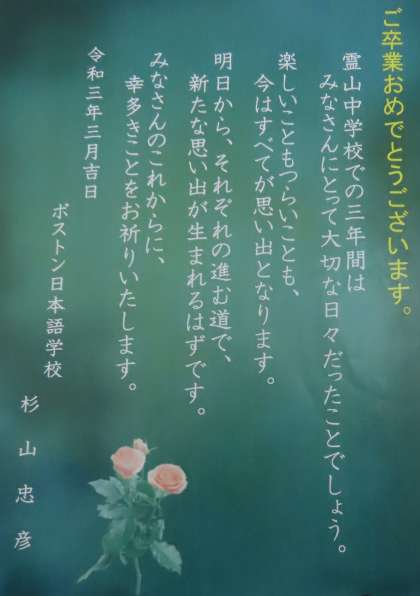 ご卒業おめでとうございます。
霊山中学校での三年間は
みなさんにとって大切な日々だったことでしょう。
楽しいこともつらいことも、
今はすべてが思い出となります。
明日から、それぞれの進む道で、
新たな思い出が生まれるはずです。
みなさんのこれからに、
幸多きことをお祈りいたします。
令和三年三月吉日
ボストン日本語学校
杉山忠彦